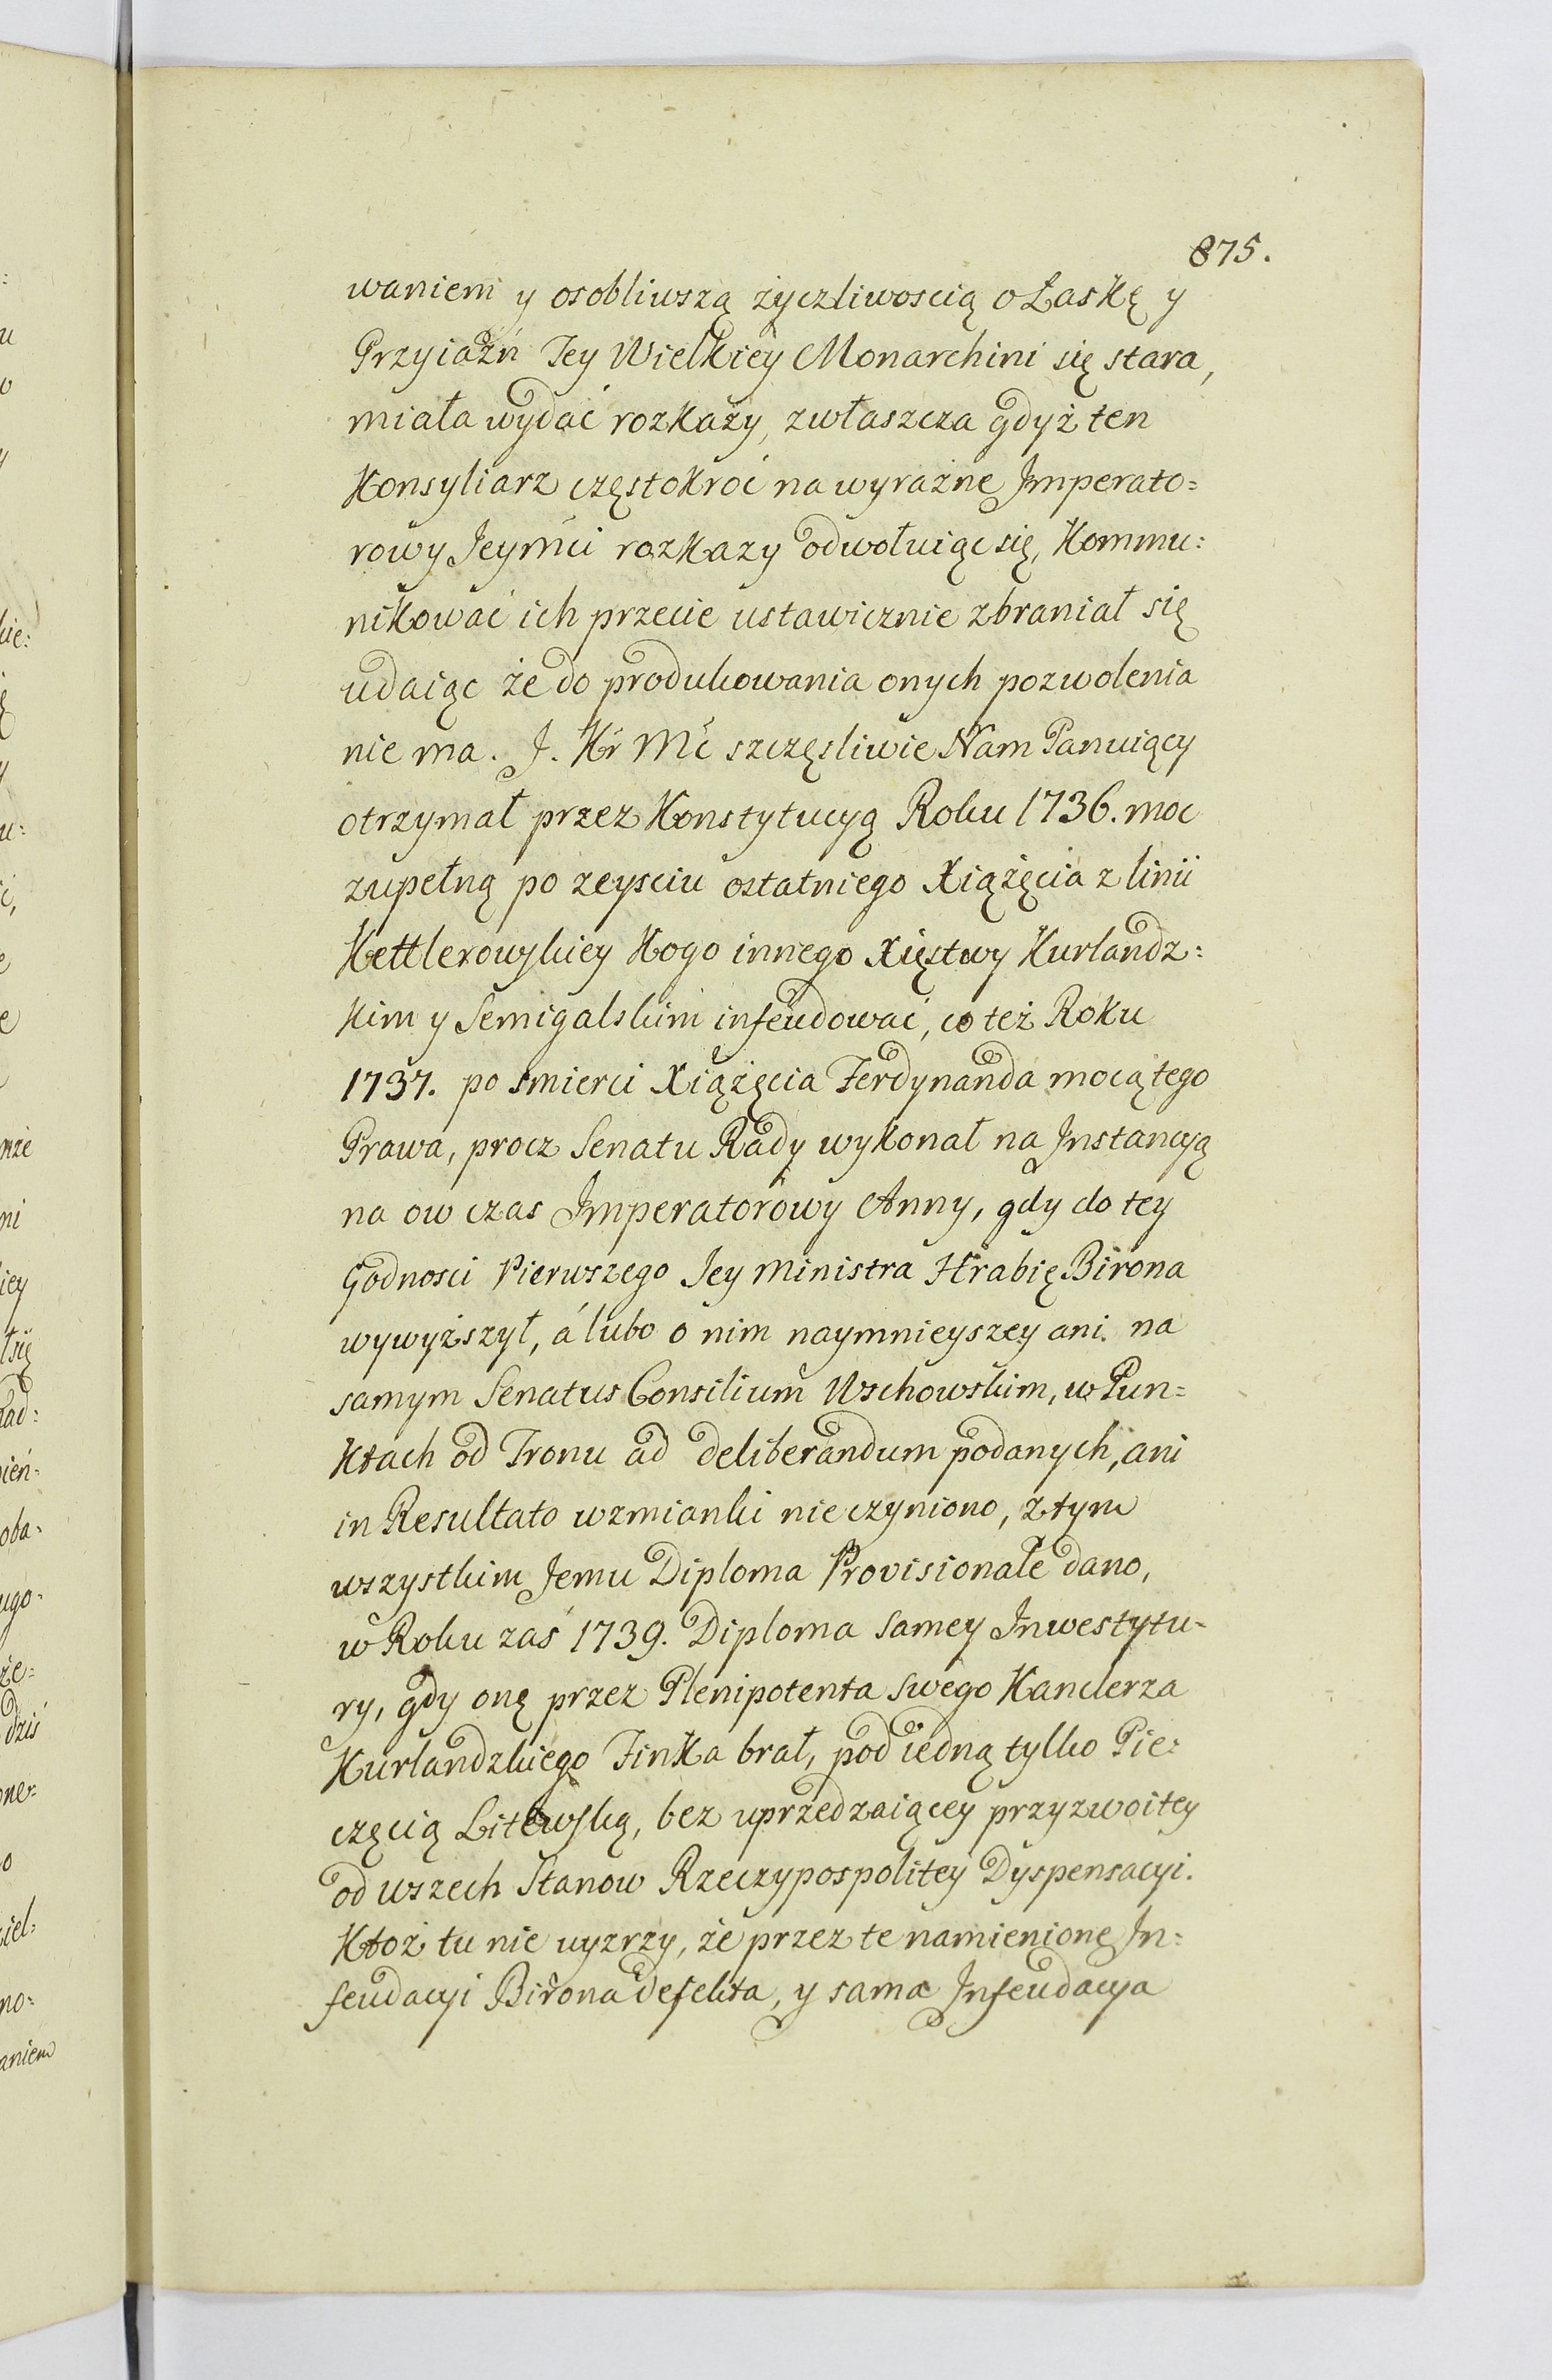 875.
waniem y osobliwszą życzliwoscią o Łaskę y
Przyiaźń Jey Wielkiey Monarchini się stara,
miała wydać rozkazy, zwłaszcza gdyż ten
Konsyliarz częstokroć na wyraźne Imperato=
rowy Jeymći rozkazy odwołuiąc się, Kommu:
nikować ich przecie ustawicznie zbraniał się
udaiąc że do produkowania onych pozwolenia
nie ma. J. Kr Mć szczęsliwie Nam Panuiący
otrzymał przez Konstytucyą Roku 1736. moc
zupełną po zeysciu ostatniego Xiążęcia z linii
Kettlerowskiey Kogo innego Xięstwy Kurlandz:
kim y Semigalskim infeudować, co też Roku
1737. po smierci Xiążęcia Ferdynanda mocą tego
Prawa, procz Senatu Rady wykonał na Instancyą
na ow czas Imperatorowy Anny, gdy do tey
Godnosci Pierwszego Jey Ministra Hrabię Birona
wywyższył, á lubo o nim naymnieyszey ani na
samym Senatus Consilium Wschowskim, w Pun=
ktach od Tronu ad deliberandum podanych, ani
in Resultato wzmianki nie czyniono, z tym
wszystkim Jemu Diploma Provisionale dano,
w Roku zaś 1739. Diploma samey Inwestytu-
ry, gdy onę przez Plenipotenta swego Kanclerza
Kurlandzkiego Finka brał, pod iedną tylko Pie:
częcią Litewską, bez uprzedzaiącey przyzwoitey
od wszech Stanow Rzeczypospolitey Dyspensacyi.
Ktoż tu nie uyzrzy, że przez te namienionę In=
feudacyi Birona defekta, y sama Infeudacya